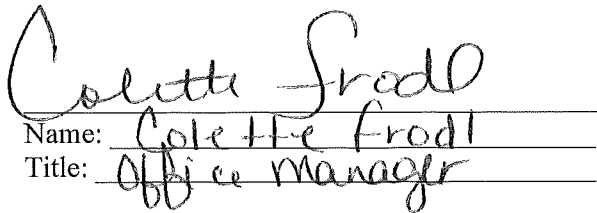 Colette Frodl
Name: Colette Frodl
Title: Office Manager